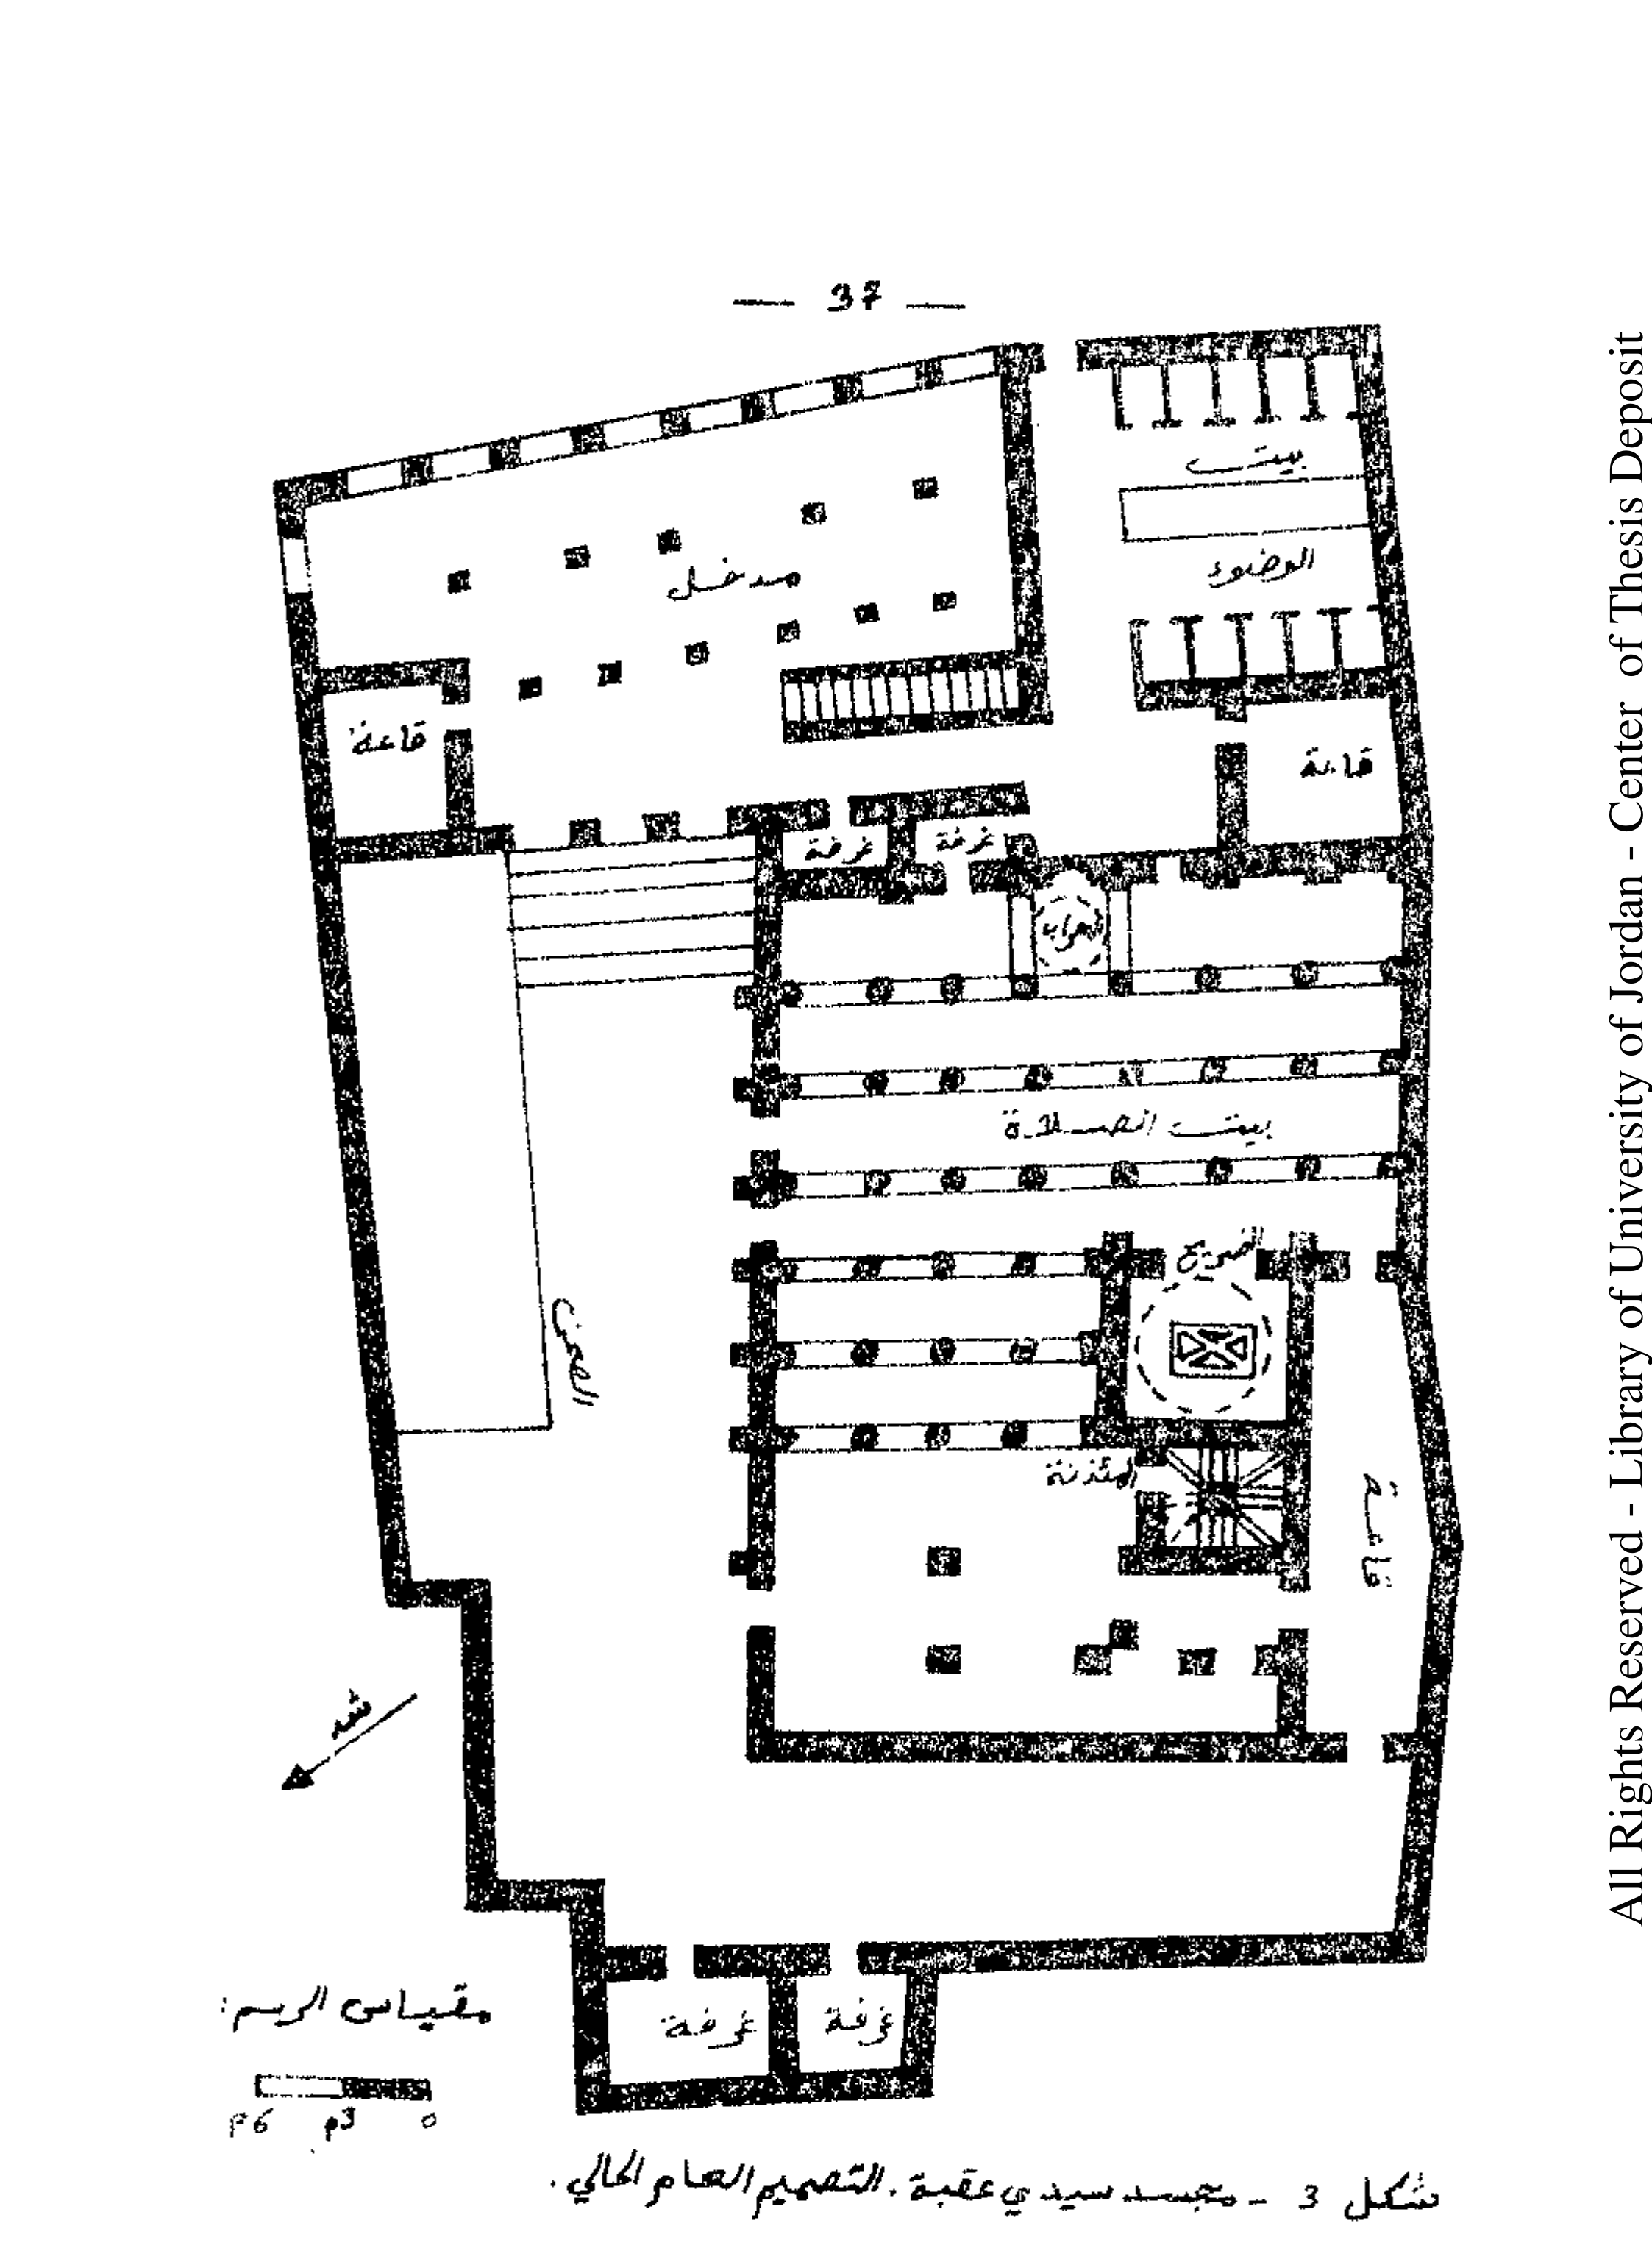 — 37 —
بيت
الوضوء
مدخل
قاعة
قاعة
غرفة
غرفة
المحراب
بيت الصلاة
الضريح
الصحن
المئذنة
قاعة
شم
غرفة
غرفة
مقياس الرسم :
0 3م 6م
شكل 3 - مسجد سيدي عقبة . التصميم العام الحالي .
All Rights Reserved - Library of University of Jordan - Center of Thesis Deposit